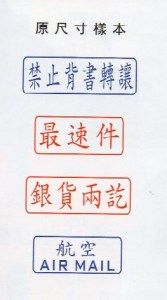 原尺寸樣本
禁止背書轉讓
最速件
銀貨兩訖
航空
AIR MAIL